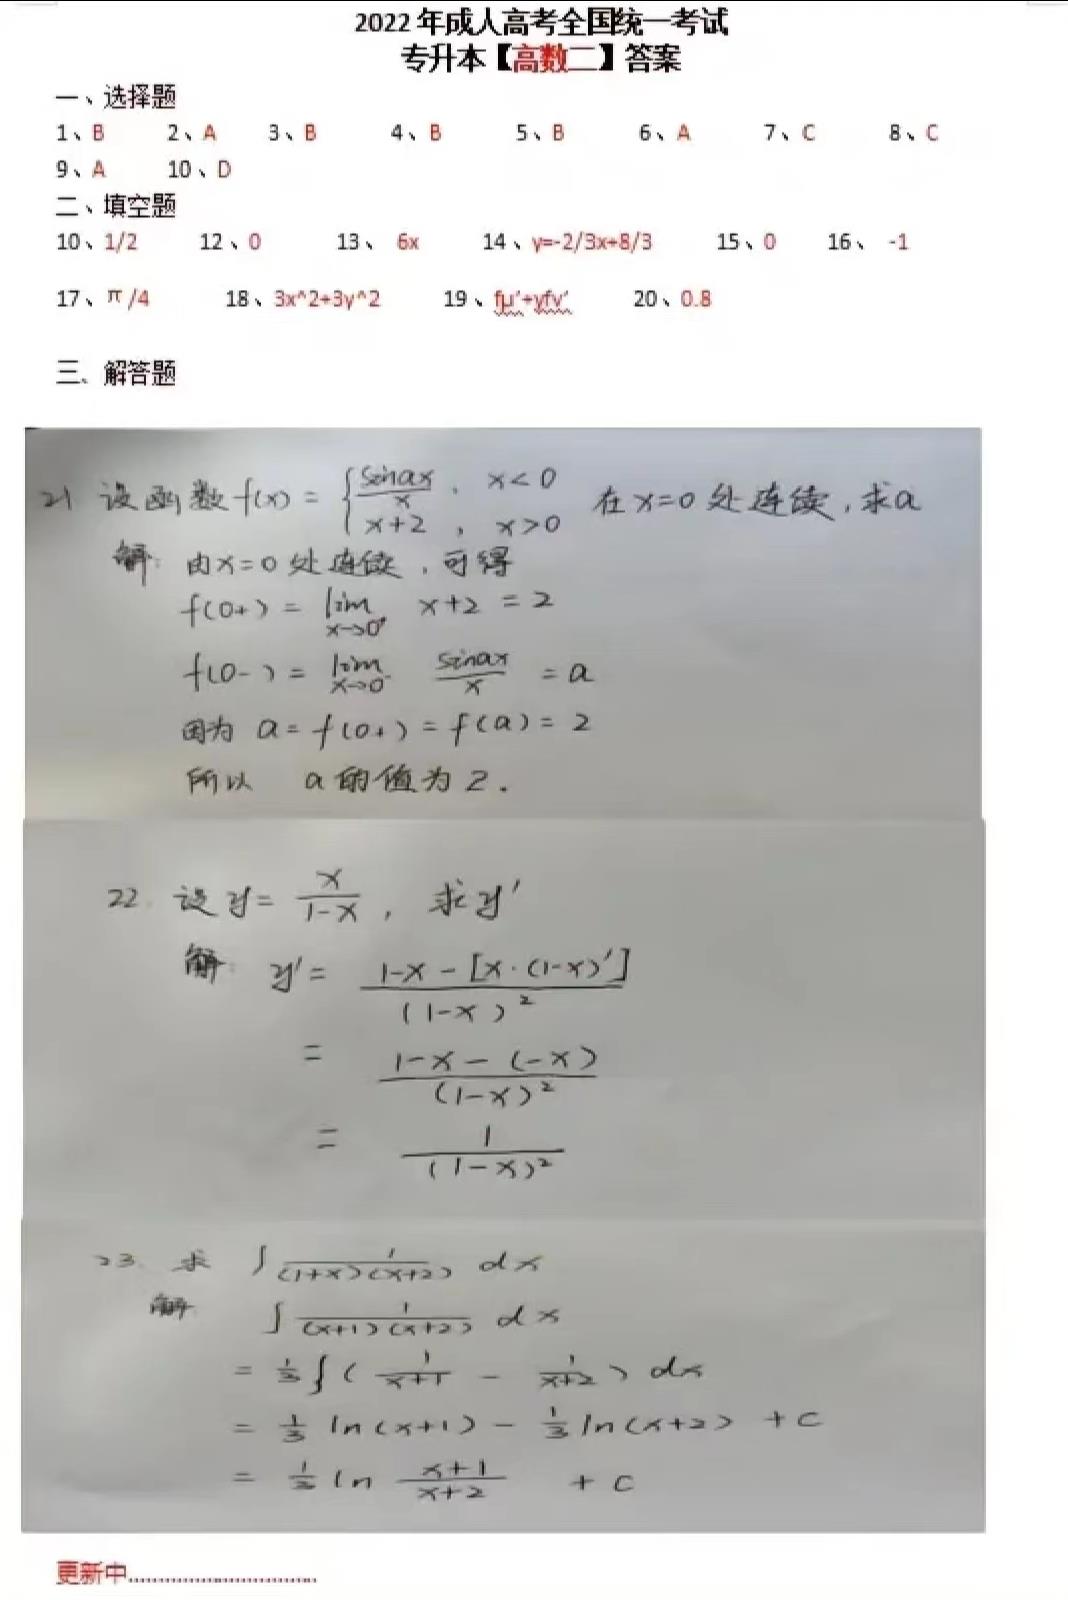 2022年成人高考全国统一考试
专升本【高数二】答案
一、选择题
1、B 2、A 3、B 4、B 5、B 6、A 7、C 8、C
9、A 10、D
二、填空题
10、1/2 12、0 13、 6x 14、y=-2/3x+8/3 15、0 16、 -1
17、π/4 18、3x^2+3y^2 19、fμ'+yfv' 20、0.8
三、解答题
21 设函数f(x) = { sinax/x , x<0 ; x+2 , x>0 在x=0处连续,求a
解: 由x=0处连续,可得
f(0+) = lim x→0⁺ x+2 = 2
f(0-) = lim x→0⁻ sinax/x = a
因为 a = f(0+) = f(a) = 2
所以 a的值为2.
22. 设y = x/(1-x) , 求y'
解: y' = (1-x-[x·(1-x)'])/(1-x)²
= (1-x-(-x))/(1-x)²
= 1/(1-x)²
23. 求 ∫ 1/((1+x)(x+2)) dx
解 ∫ 1/((x+1)(x+2)) dx
= 1/3 ∫ ( 1/(x+1) - 1/(x+2) ) dx
= 1/3 ln(x+1) - 1/3 ln(x+2) + c
= 1/3 ln (x+1)/(x+2) + c
更新中................................